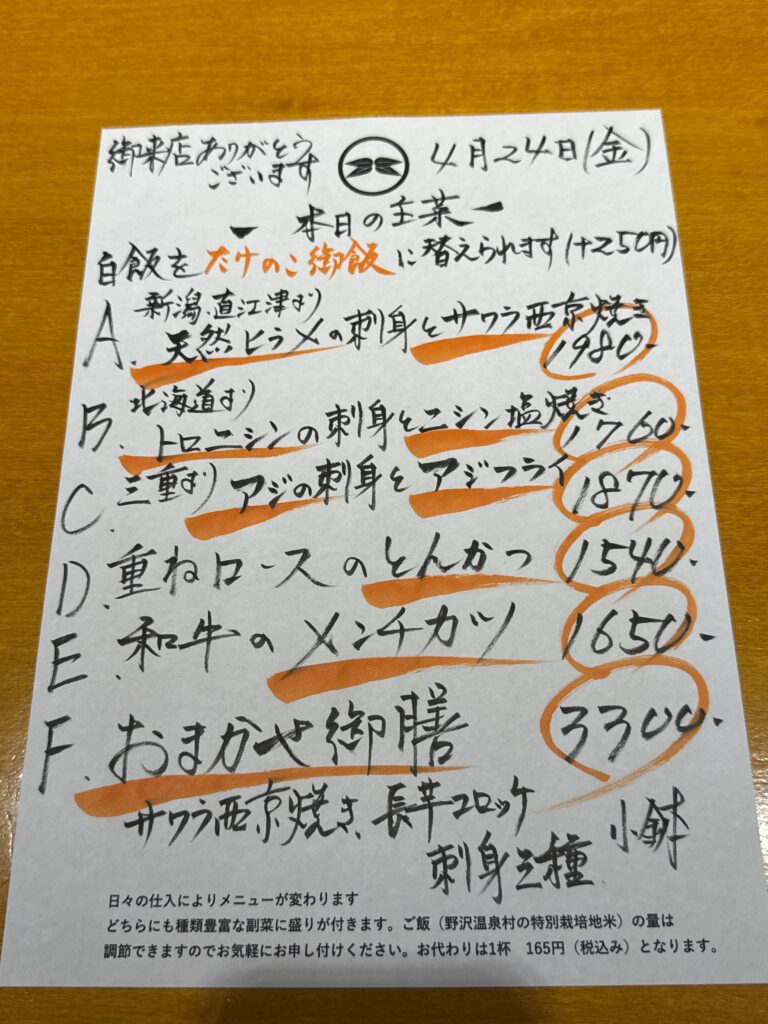 御来店ありがとう
ございます
4月24日(金)
本日の主菜
白飯をたけのこ御飯に替えられます(+250円)
新潟.直江津より
A. 天然ヒラメの刺身とサワラ西京焼き
1980-
北海道より
B. トロニシンの刺身とニシン塩焼き
1760-
C. 三重より アジの刺身とアジフライ 1870-
D. 重ねロースのとんかつ 1540-
E. 和牛のメンチカツ 1650-
F. おまかせ御膳 3300-
サワラ西京焼き、長芋コロッケ
刺身三種 小鉢
日々の仕入によりメニューが変わります
どちらにも種類豊富な副菜に盛りが付きます。ご飯(野沢温泉村の特別栽培地米)の量は
調節できますのでお気軽にお申し付けください。お代わりは1杯 165円(税込み)となります。